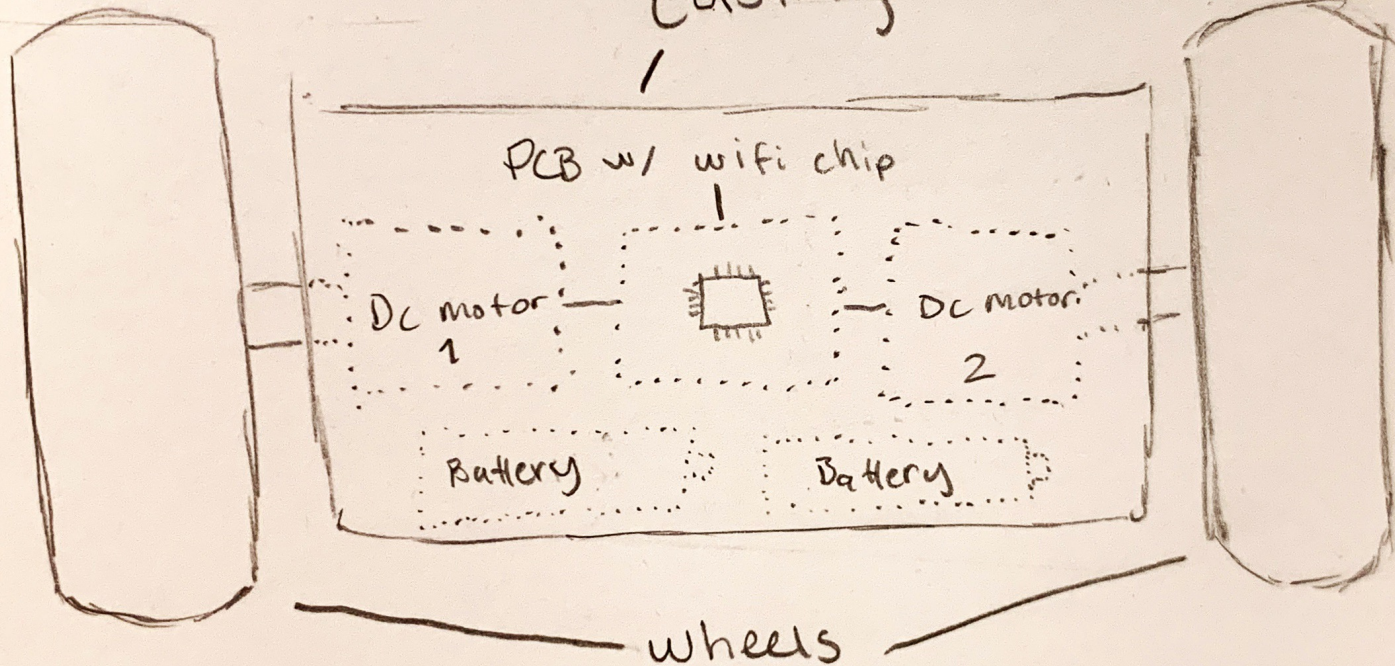 PCB w/ wifi chip
DC motor
1
DC motor
2
Battery
Battery
wheels